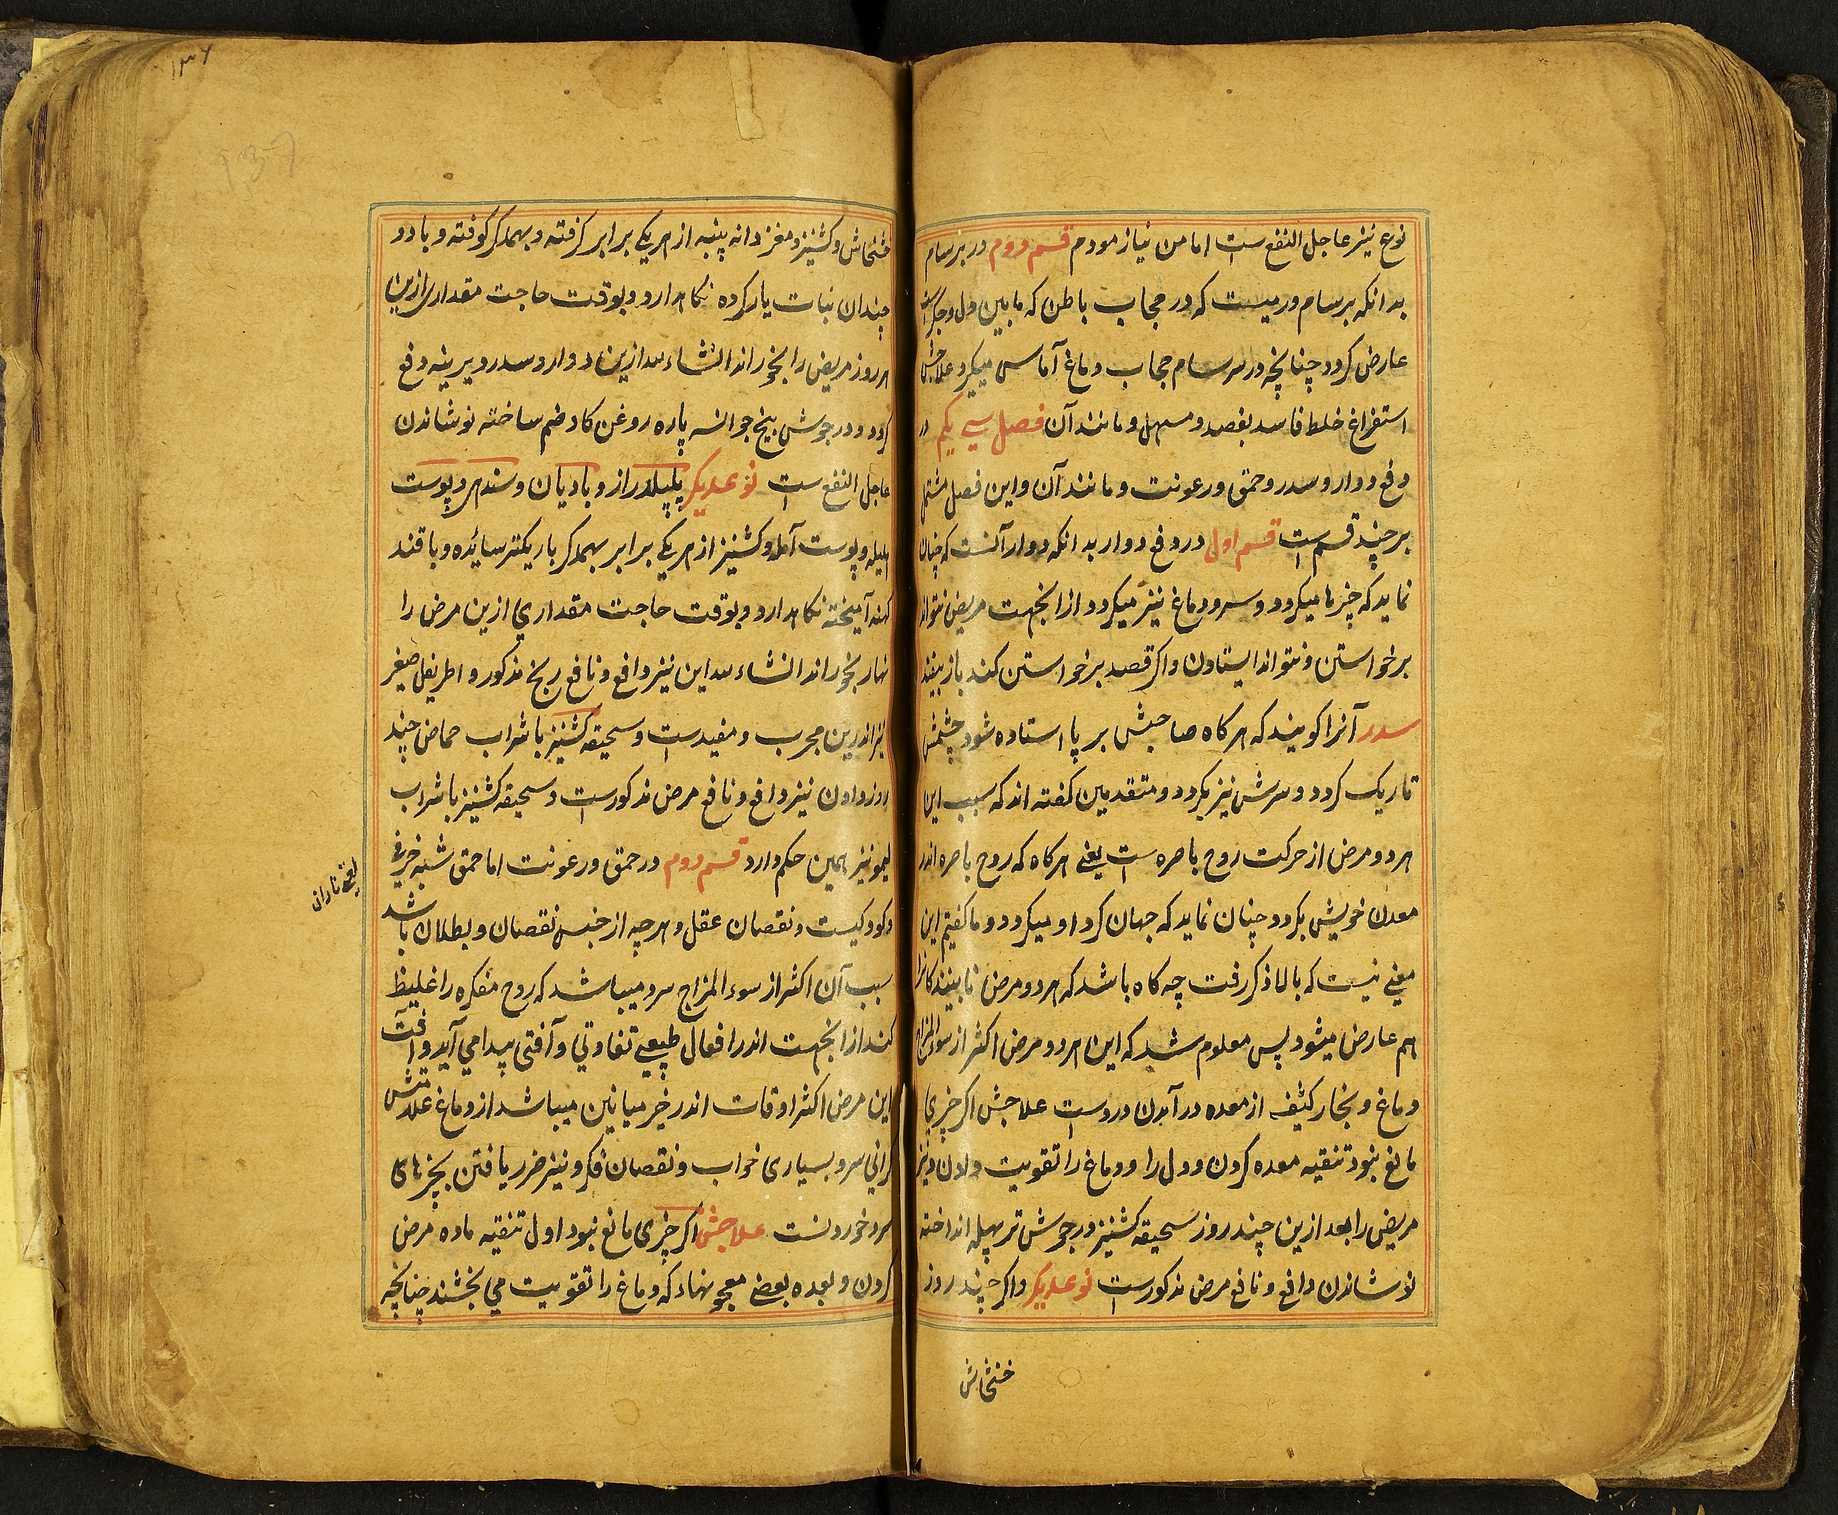 نوع نیز عاجل النفع ست اما من نیازمودم قسم دوم در برسام
بدانکه برسام ورمیست که در حجاب باطن که مابین دل و جگر است
عارض گردد چنانچه در سرسام حجاب دماغ آماس میگیرد علاجش
استفراغ خلط فاسد بفصد و مسهل و مانند آن فصل سی یکم در
دفع دوار و سدر و حمق و رعونت و مانند آن و این فصل مشتمل
بر چند قسم ست قسم اول در دفع دوار بدانکه دوار آنست که چنان
نماید که چیزها میگردد و سر و دماغ نیز میگردد ازانجهت مریض نتواند
برخواستن و نتواند ایستادن و اگر قصد برخواستن کند باز بیفتد
سدر آنرا گویند که هرگاه صاحبش بر پا استاده شود چشمش
تاریک گردد و سرش نیز بگردد و متقدمین گفته اند که سبب این
هر دو مرض از حرکت روح باصره ست یعنی هرگاه که روح باصره اندر
معدن خویش بگردد چنان نماید که جهان گرد او میگردد و ما گفتیم این
معنی نیست که بالا ذکر رفت چه گاه باشد که هر دو مرض نابینندگانرا
هم عارض میشود پس معلوم شد که این هر دو مرض اکثر از سوء المزاج
دماغ و بخار کثیف از معده در آمدن دروست علاجش اگر چیزی
مانع نبود تنقیه معده کردن و دل را و دماغ را تقویت دادن و نیز
مریض را بعد ازین چند روز سحیقه کشنیز در جوش ترپهله انداخته
نوشاندن دافع و نافع مرض مذکورست نوعدیگر و اگر چند روز
خشخاش
۱۳۶
137
خشخاش و کشنیز و مغز دانه پنبه از هریکی برابر گرفته و بهمدگر کوفته و با دو
چندان نبات یار کرده نگاهدارد و بوقت حاجت مقداری ازین
هر روز مریض را بخوراند انشاء الله ازین دوار و سدر دیرینه دفع
گردد و در جوش بیخ جوانسه پاره روغن گاو ضم ساخته نوشاندن
عاجل النفع ست نوعدیگر پلپلدراز و بادیان و سندهی و پوست
هلیله و پوست آمله و کشنیز از هریکی برابر بهمدگر باریکتر سائیده و با قند
کهنه آمیخته نگاهدارد و بوقت حاجت مقداری ازین مرض را
نهار بخوراند انشاء الله این نیز دافع و نافع رنج مذکور و اطریفل صغیر
نیز اندرین مجرب و مفیدست و سحیقه کشنیز با شراب حماض چند
روز دادن نیز دافع و نافع مرض مذکورست و سحیقه کشنیز با شراب
لیمو نیز همین حکم دارد قسم دوم در حمق و رعونت اما حمق شبه خرفی
و کودکیست و نقصان عقل و هر چه از جنس نقصان و بطلان باشد
یعنی نادان
سبب آن اکثر از سوء المزاج سرد میباشد که روح مفکره را غلیظ
کند ازانجهت اندر افعال طبیعی تفاوتی و آفتی پیدا می آید و آفت
این مرض اکثر اوقات اندر خیر میانین میباشد از دماغ علامتش
گرانی سر و بسیاری خواب و نقصان فکر و نیز ضرر یافتن بچیزهای
سرد خوردنست علاجش اگر چیزی مانع نبود اول تنقیه ماده مرض
کردن و بعده بعضی معجونهاء که دماغ را تقویت می بخشند چنانچه